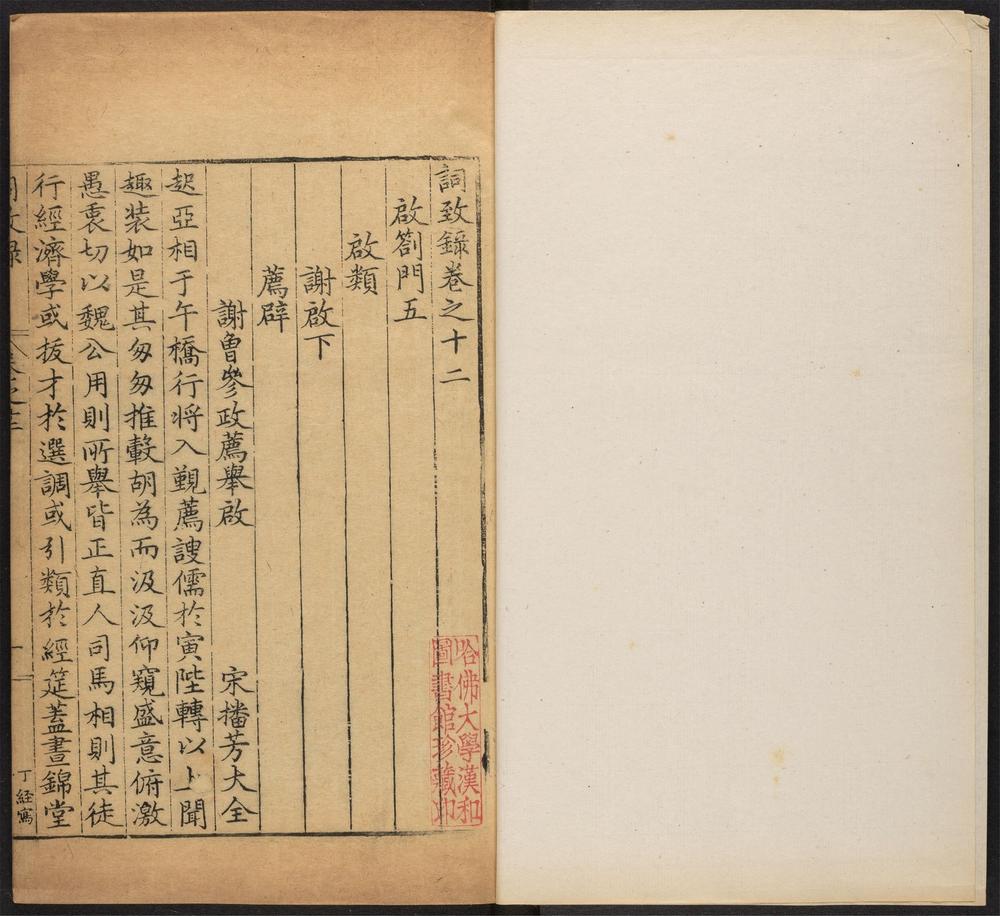 詞致録卷之十二
啟劄門五
啟類
謝啟下
薦辟
謝曾參政薦舉啟 宋播芳大全
起亞相于午橋行将入覲薦謏儒於寅陛轉以上聞
趣装如是其匆匆推轂胡為而汲汲仰窺盛意俯激
愚衷切以魏公用則所舉皆正直人司馬相則其徒
行經濟學或拔才於選調或引類於經筵蓋晝錦堂
一
丁経寫
哈佛大學漢和
圖書館珍藏印